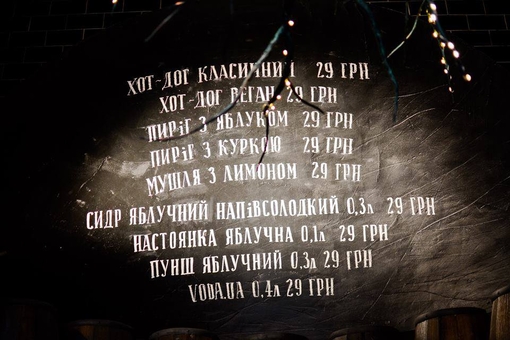 ХОТ-ДОГ КЛАСИЧНИЙ 29 ГРН
ХОТ-ДОГ ВЕГАН 29 ГРН
ПИРіГ З ЯБЛУКОМ 29 ГРН
ПИРіГ З КУРКОЮ 29 ГРН
МУШЛЯ З ЛИМОНОМ 29 ГРН
СИДР ЯБЛУЧНИЙ НАПіВСОЛОДКИЙ 0,3л 29 ГРН
НАСТОЯНКА ЯБЛУЧНА 0,1л 29 ГРН
ПУНШ ЯБЛУЧНИЙ 0,3л 29 ГРН
VODA.UA 0,4л 29 ГРН